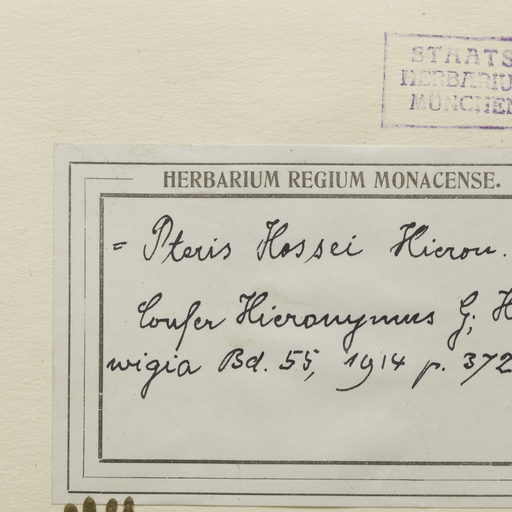 STAATS
HERBARIU
MÜNCHEN
HERBARIUM REGIUM MONACENSE.
= Pteris Hossei Hieron.
Confer Hieronymus G; H
wigia Bd. 55, 1914 p. 372